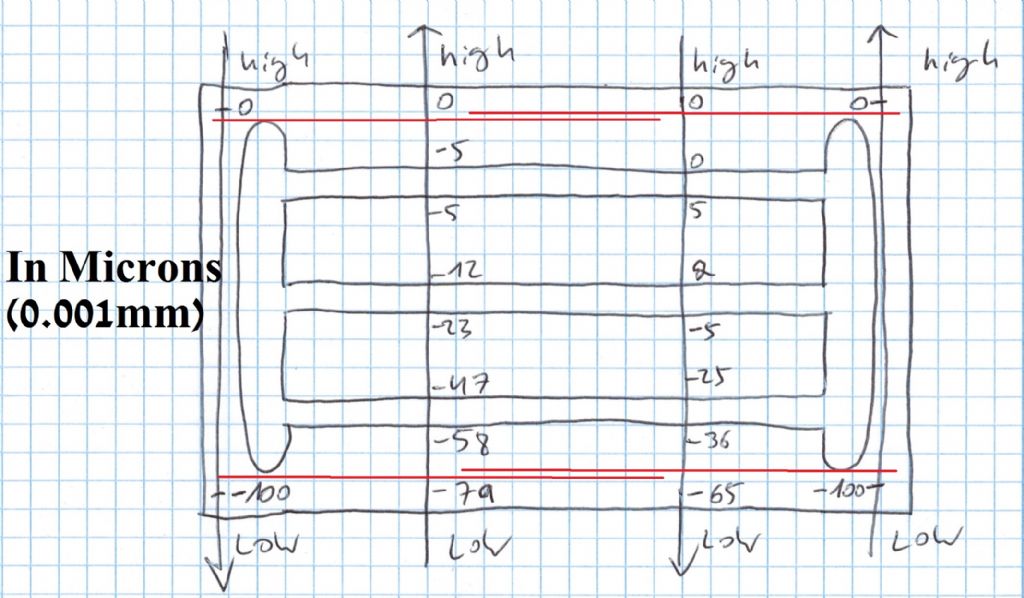 high high high high
0 0 0 0
-5 0
-5 5
-12 2
In Microns
(0.001mm)
-23 -5
-47 -25
-58 -36
-100 -79 -65 -100
LOW LOW LOW LOW